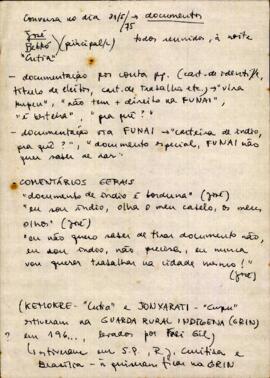 Conversa no dia 29/5/75 → documentos
José
Bebkó } (principal/)
"Cutia"
todos reunidos, à noite
- documentação por conta pp. (cart. de identif.,
título de eleitor, cart. de trabalho etc.) → "vira
kupen", "não tem + direito na FUNAI",
"é besteira", "pra quê?"
- documentação via FUNAI → "carteira de índio,
pra quê?", "documento especial, FUNAI não
quer saber de nós"
COMENTÁRIOS GERAIS
"documento de índio é borduna" (José)
"eu sou índio, olha o meu cabelo, os meus
olhos" (José)
"eu não quero saber de tirar documento não,
eu sou índio, não preciso, eu nunca
vou querer trabalhar na cidade mesmo!"
(José)
(KEMOKRE - "Cutia" e JONXARATI - "Cupu"
estiveram na GUARDA RURAL INDÍGENA (GRIN)
? em 196..., levados por Frei Gil)
(estiveram em S.P., RJ, Curitiba e
Brasília - ñ quiseram ficar na GRIN